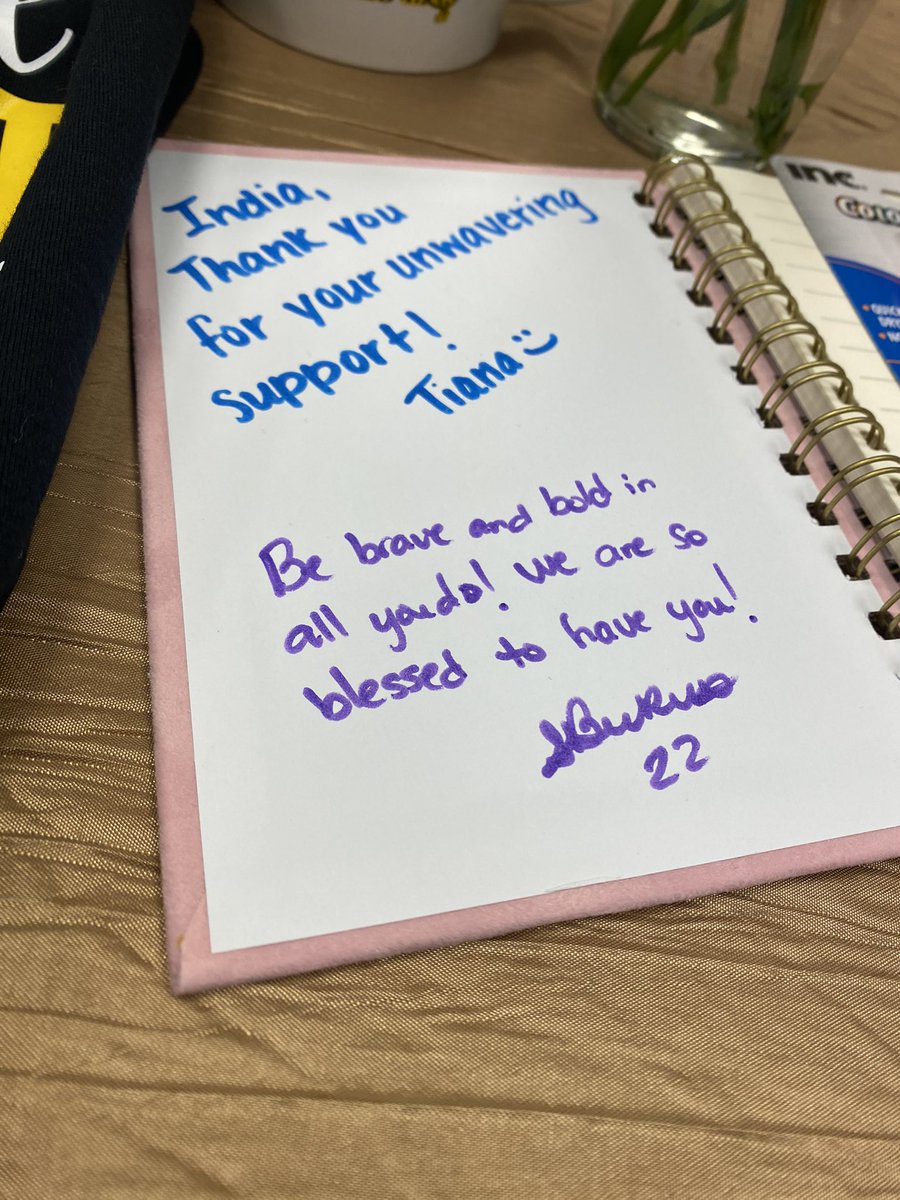 India,
Thank you
for your unwavering
support!
Tiana
Be brave and bold in
all you do! we are so
blessed to have you!
22
INC.